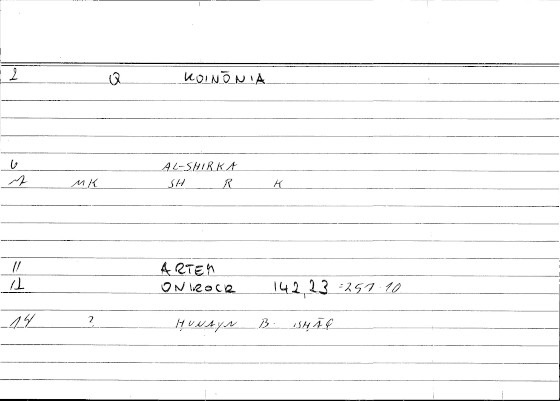 2 Q KOINŌNIA
6 AL-SHIRKA
7 MK SH R K
11 ARTEM
12 ONIROCR 142,23 =251.10
14 ? ḤUNAYN B. ISḤĀQ